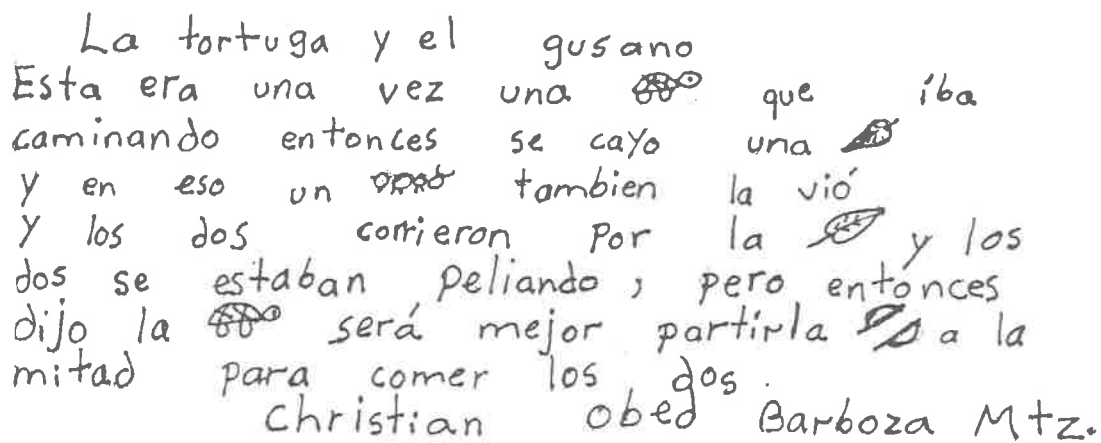 La tortuga y el gusano
Esta era una vez una que iba
caminando entonces se cayo una
y en eso un tambien la vió
y los dos corrieron por la y los
dos se estaban peliando, pero entónces
dijo la será mejor partirla a la
mitad para comer los dos.
Christian Obed Barboza Mtz.